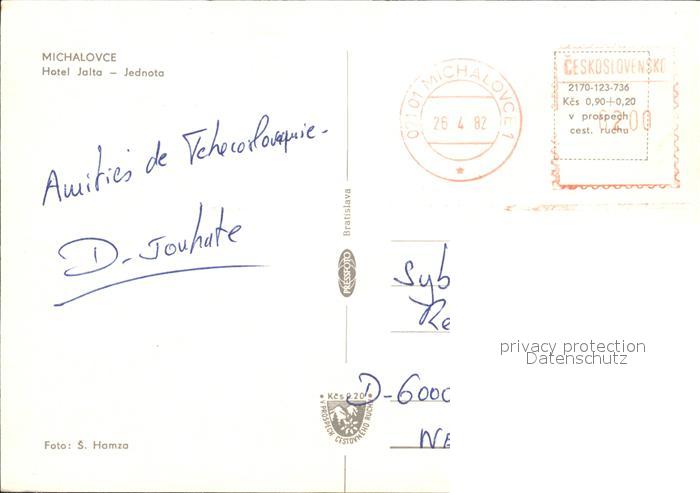 MICHALOVCE
Hotel Jalta – Jednota
071 01 MICHALOVCE 1
26 4 82
ČESKOSLOVENSKO
2170-123-736
Kčs 0,90+0,20
v prospech
cest. ruchu
0200
Amitiés de Tchecoslovaquie.
D. Jouhate
Bratislava
PRESSFOTO
Syb
Re
privacy protection
Datenschutz
Kčs 0.20
V PROSPECH CESTOVNÉHO RUCHU
D-6000
NE
Foto: Š. Hamza